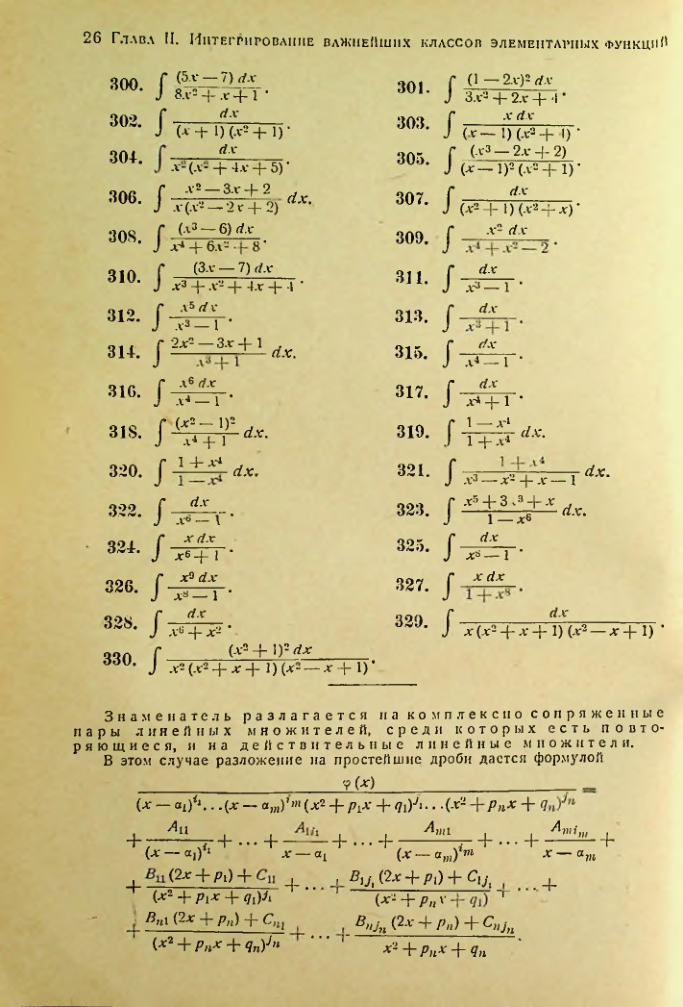 26 Глава II. Интегрирование важнейших классов элементарных функций
300. ∫ (5x — 7) dx / (8x² + x + 1).
301. ∫ (1 — 2x)² dx / (3x² + 2x + 4).
302. ∫ dx / ((x + 1) (x² + 1)).
303. ∫ x dx / ((x — 1) (x² + 4)).
304. ∫ dx / (x² (x² + 4x + 5)).
305. ∫ (x³ — 2x + 2) / ((x — 1)² (x² + 1)).
306. ∫ (x² — 3x + 2) / (x (x² — 2x + 2)) dx.
307. ∫ dx / ((x² + 1) (x² + x)).
308. ∫ (x³ — 6) dx / (x⁴ + 6x² + 8).
309. ∫ x² dx / (x⁴ + x² — 2).
310. ∫ (3x — 7) dx / (x³ + x² + 4x + 4).
311. ∫ dx / (x³ — 1).
312. ∫ x⁵ dx / (x³ — 1).
313. ∫ dx / (x³ + 1).
314. ∫ (2x² — 3x + 1) / (x³ + 1) dx.
315. ∫ dx / (x⁴ — 1).
316. ∫ x⁶ dx / (x⁴ — 1).
317. ∫ dx / (x⁴ + 1).
318. ∫ (x² — 1)² / (x⁴ + 1) dx.
319. ∫ (1 — x⁴) / (1 + x⁴) dx.
320. ∫ (1 + x⁴) / (1 — x⁴) dx.
321. ∫ (1 + x⁴) / (x³ — x² + x — 1) dx.
322. ∫ dx / (x⁶ — 1).
323. ∫ (x⁵ + 3x³ + x) / (1 — x⁶) dx.
324. ∫ x dx / (x⁶ + 1).
325. ∫ dx / (x⁸ — 1).
326. ∫ x⁹ dx / (x⁸ — 1).
327. ∫ x dx / (1 + x⁸).
328. ∫ dx / (x⁶ + x²).
329. ∫ dx / (x (x² + x + 1) (x² — x + 1)).
330. ∫ (x² + 1)² dx / (x² (x² + x + 1) (x² — x + 1)).
Знаменатель разлагается на комплексно сопряженные
пары линейных множителей, среди которых есть повто-
ряющиеся, и на действительные линейные множители.
В этом случае разложение на простейшие дроби дастся формулой
φ (x) / ((x — α₁)^{i₁}...(x — α_m)^{i_m} (x² + p₁x + q₁)^{j₁}...(x² + p_n x + q_n)^{j_n}) =
+ A₁₁ / (x — α₁)^{i₁} + ... + A_{1i₁} / (x — α₁) + ... + A_{m1} / (x — α_m)^{i_m} + ... + A_{mi_m} / (x — α_m) +
+ (B₁₁ (2x + p₁) + C₁₁) / (x² + p₁x + q₁)^{j₁} + ... + (B_{1j₁} (2x + p₁) + C_{1j₁}) / (x² + p_n x + q₁) + ... +
+ (B_{n1} (2x + p_n) + C_{n1}) / (x² + p_n x + q_n)^{j_n} + ... + (B_{nj_n} (2x + p_n) + C_{nj_n}) / (x² + p_n x + q_n).